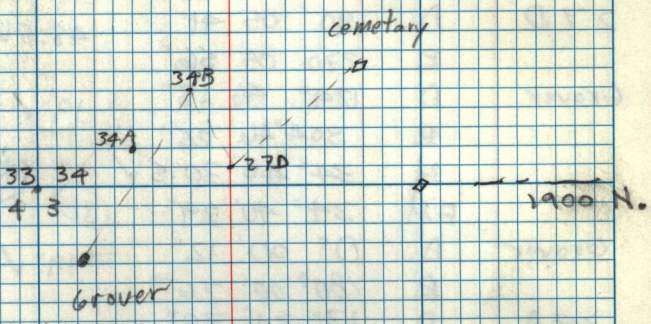 cemetary
34B
34A
27D
33 34
4 3
1900 N.
Grover